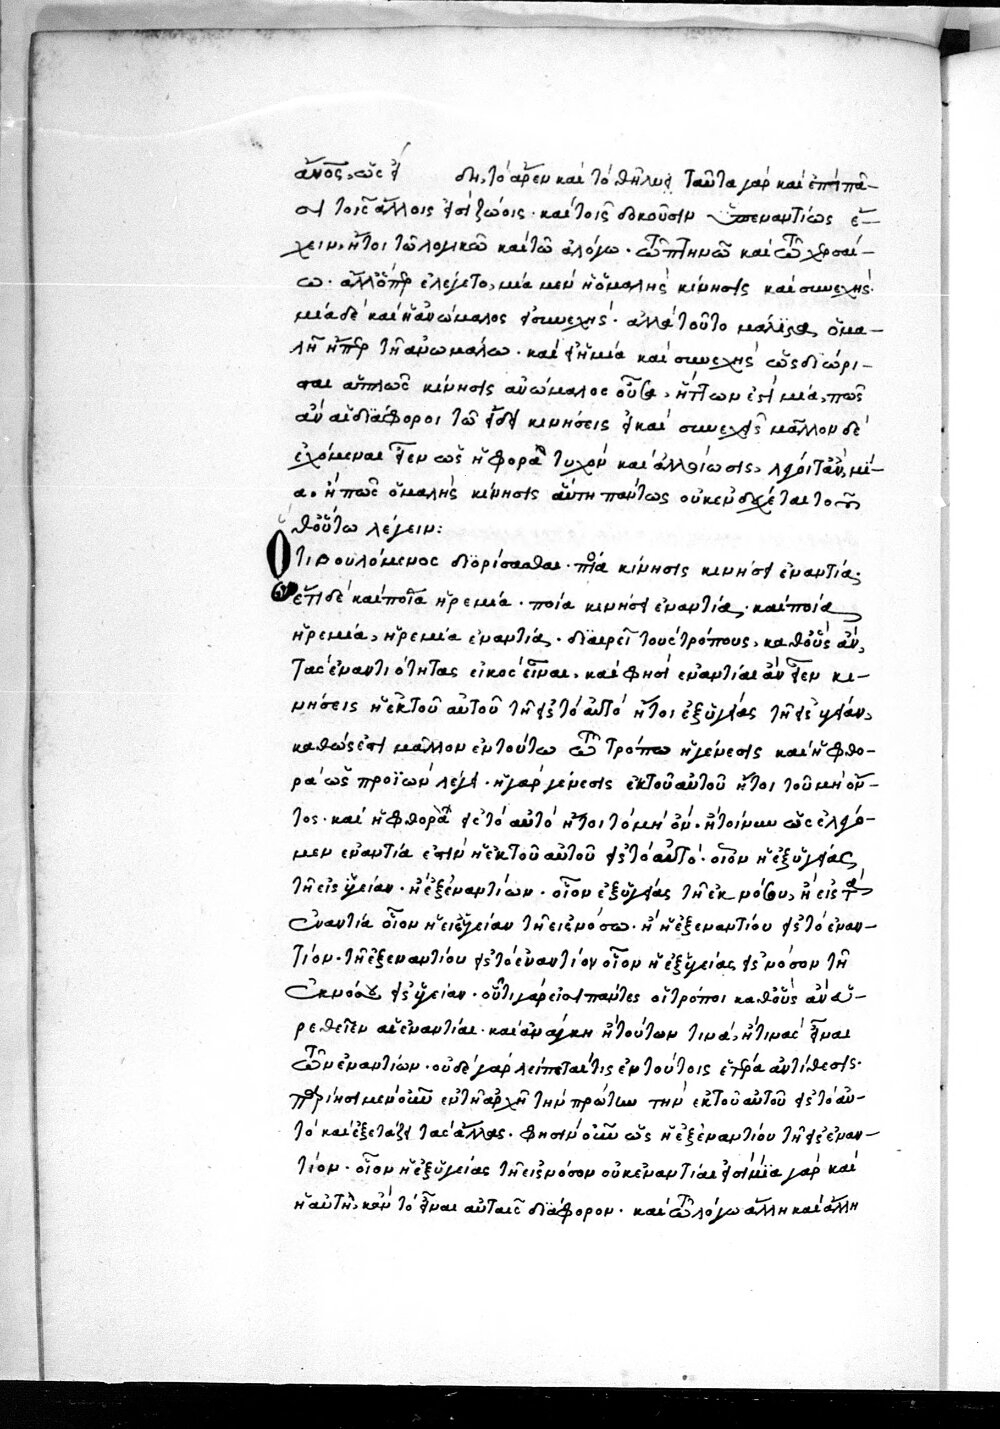 ἄνος, ὡς εἴ δη, τὸ ἄρεν καὶ τὸ θῆλυ, ταῦτα γὰρ καὶ ἐπὶ πᾶ-
σι τοῖς ἄλλοις ἐστὶ ζώοις. καὶ τοῖς δοκοῦσιν ὑπεναντίως ἔ-
χειν, ἤτοι τῶ λογικῶ καὶ τῶ ἀλόγω. τῶ πτηνῶ καὶ τῶ χερσαί-
ω. ἀλλ' ὅπερ ἐλέγετο, μία μὲν ἡ ὁμαλὴς κίνησις καὶ συνεχής.
μία δὲ καὶ ἡ ἀνώμαλος ἡ συνεχής. ἀλλὰ τοῦτο μάλιστα ὁμα-
λῆ ἤπερ τῆ ἀνωμάλω. καὶ εἰ ἡ μία καὶ συνεχὴς ὡς διώρι-
σται ἁπλῶς κίνησις ἀνώμαλος οὖσα, ἧττων ἐστὶ μία, πῶς
ἂν αἱ διάφοροι τῶ εἴδει κινήσεις καὶ συνεχεῖς μᾶλλον δὲ
ἐχόμεναι εἶεν ὡς ἡ φορὰ τυχὸν καὶ ἀλλοίωσις, μί-
α. ἢ πῶς ὁμαλὴς κίνησις αὕτη πάντως οὐκ ἐνδέχεται το
θ' οὕτω λέγειν:
Ὅτι βουλόμενος διορίσασθαι. ποία κίνησις κινήσει ἐναντία.
ἔτι δὲ καὶ ποῖα ἠρεμία. ποία κινήσει ἐναντία. καὶ ποία
ἠρεμία, ἠρεμία ἐναντία. διαιρεῖ τοὺς τρόπους, καθ' οὓς ἂν,
τὰς ἐναντιότητας εἰκὸς εἶναι, καὶ φησὶ ἐναντίαι ἂν εἶεν κι-
νήσεις ἡ ἐκ τοῦ αὐτοῦ τῆ εἰς τὸ αὐτὸ ἤτοι ἐξ ὑγείας τῆ εἰς ὑγείαν,
καθώς ἐστι μᾶλλον ἐν τούτω τῶ τρόπω ἡ γένεσις καὶ ἡ φθο-
ρὰ ὡς προϊὼν λέγει. ἡ γὰρ γένεσις ἐκ τοῦ αὐτοῦ ἤτοι τοῦ μὴ ὄν-
τος. καὶ ἡ φθορὰ εἰς τὸ αὐτὸ ἤτοι τὸ μὴ ὄν. ἢ τοίνυν ὡς ἐλέγο-
μεν ἐναντία ἐστὶν ἡ ἐκ τοῦ αὐτοῦ εἰς τὸ αὐτό. οἷον ἡ ἐξ ὑγείας
τῆ εἰς ὑγείαν. ἢ ἐξ ἐναντίων. οἷον ἐξ ὑγείας τῆ ἐκ νόσου, ἢ εἰς τὰ
ἐναντία οἷον ἡ εἰς ὑγείαν τῆ εἰς νόσω. ἢ ἡ ἐξ ἐναντίου εἰς τὸ ἐναν-
τίον. τῆ ἐξ ἐναντίου εἰς τὸ ἐναντίον οἷον ἡ ἐξ ὑγείας εἰς νόσον τῆ
ἐκ νόσου εἰς ὑγείαν. οὗτοι γάρ εἰσι πάντες οἱ τρόποι καθ' οὓς ἂν εὑ-
ρεθεῖεν αἱ ἐναντίαι. καὶ ἀνάγκη ἢ τούτων τινά, ἤ τινας εἶναι
τῶν ἐναντίων. οὐδὲ γὰρ λείπεταί τις ἐν τούτοις ἑτέρα ἀντίθεσις.
μὲν οὖν ἐν τῆ ἀρχῆ τὴν πρώτην τὴν ἐκ τοῦ αὐτοῦ εἰς τὸ αὐ-
τὸ καὶ ἐξετάζει τὰς ἄλλας. φησὶν οὖν ὡς ἡ ἐξ ἐναντίου τῆ εἰς ἐναν-
τίον. οἷον ἡ ἐξ ὑγείας τῆ εἰς νόσον οὐκ ἐναντίαι εἰσὶ μία γὰρ καὶ
ἡ αὐτή, κἂν τὸ εἶναι αὐταῖς διάφορον. καὶ τῶ λόγω ἄλλη καὶ ἄλλη